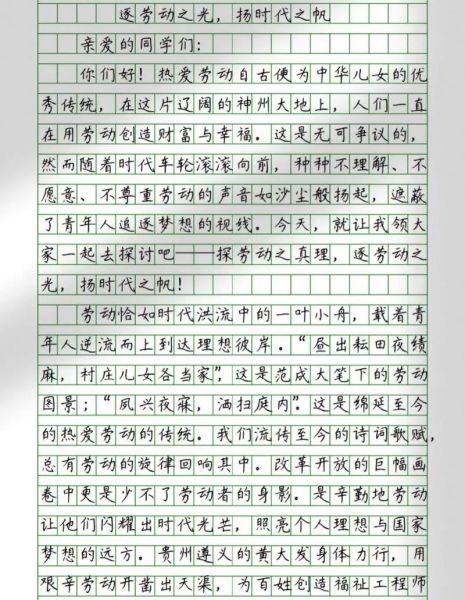 逐劳动之光，扬时代之帆
亲爱的同学们：
你们好！热爱劳动自古便为中华儿女的优
秀传统，在这片辽阔的神州大地上，人们一直
在用劳动创造财富与幸福。这是无可争议的，
然而随着时代车轮滚滚向前，种种不理解、不
愿意、不尊重劳动的声音如沙尘般扬起，遮蔽
了青年人追逐梦想的视线。今天，就让我领大
家一起去探讨吧——探劳动之真理，逐劳动之
光，扬时代之帆！
劳动恰如时代洪流中的一叶小舟，载着青
年人逆流而上到达理想彼岸。“昼出耘田夜绩
麻，村庄儿女各当家”，这是范成大笔下的劳动
图景；“夙兴夜寐，洒扫庭内”。这是绵延至今
的热爱劳动的传统。我们流传至今的诗词歌赋，
总有劳动的旋律回响其中。改革开放的巨幅画
卷中更是少不了劳动者的身影。是辛勤地劳动
让他们闪耀出时代光芒，照亮个人理想与国家
梦想的远方。贵州遵义的黄大发身体力行，用
艰辛劳动开凿出天渠，为百姓创造福祉工程师